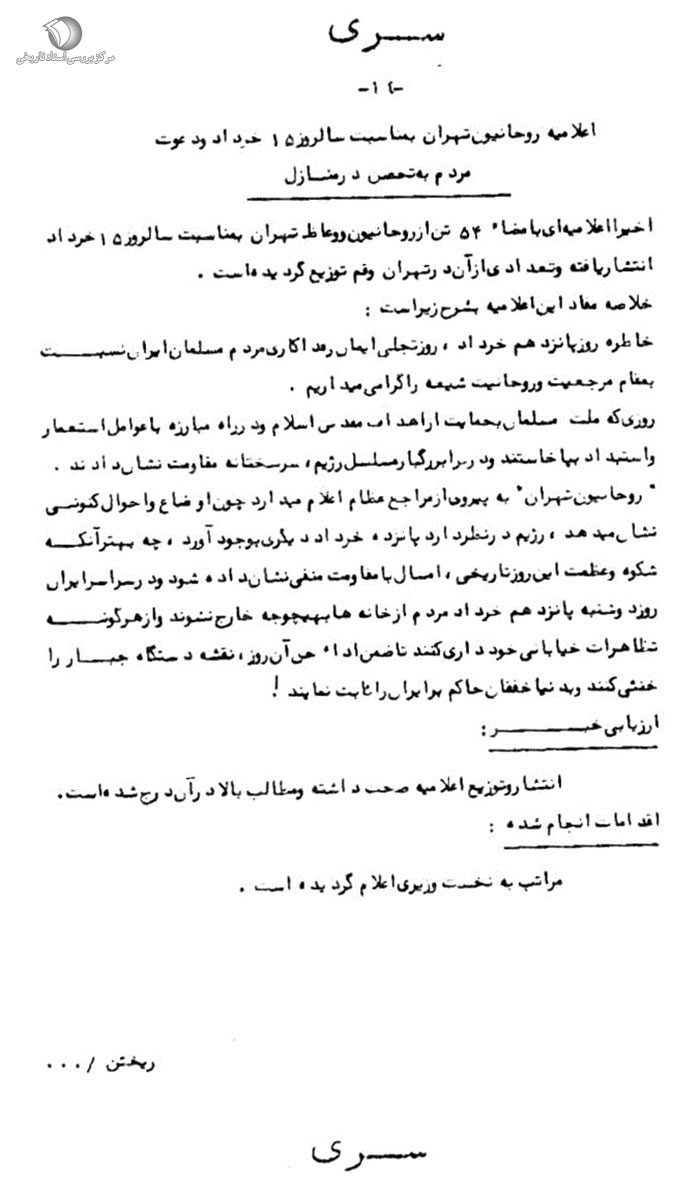 مرکز بررسی اسناد تاریخی
سری
-۱٤-
اعلامیه روحانیون تهران بمناسبت سالروز ۱۵ خرداد ودعوت
مردم به تحصن در منازل
اخیرا اعلامیه‌ای با مضاء ۵۴ تن از روحانیون ووعاظ تهران بمناسبت سالروز ۱۵ خرداد
انتشار یافته وتعدادی از آن در تهران وقم توزیع گردیده است .
خلاصه مفاد این اعلامیه بشرح زیر است :
خاطره روز پانزدهم خرداد ، روز تجلی ایمان وفداکاری مردم مسلمان ایران نسبت
بمقام مرجعیت وروحانیت شیعه را گرامی میداریم .
روزی که ملت مسلمان بحمایت از اهداف مقدس اسلام ودر راه مبارزه با عوامل استعمار
واستبداد بپا خاستند ودر برابر رگبار مسلسل رژیم ، سرسختانه مقاومت نشان دادند .
"روحانیون تهران" به پیروی از مراجع عظام اعلام میدارد چون اوضاع واحوال کنونی
نشان میدهد ، رژیم در نظر دارد پانزده خرداد دیگری بوجود آورد ، چه بهتر آنکه
شکوه وعظمت این روز تاریخی ، امسال با مقاومت منفی نشان داده شود ودر سراسر ایران
روز دوشنبه پانزدهم خرداد مردم از خانه ها بهیچوجه خارج نشوند واز هرگونه
تظاهرات خیابانی خودداری کنند تا ضمن اداء حق آن روز ، نقشه دستگاه جبار را
خنثی کنند وبدنیا خفقان حاکم بر ایران را ثابت نمایند !
ارزیابی خبر :
انتشار وتوزیع اعلامیه صحت داشته ومطالب بالا در آن درج شده است.
اقدامات انجام شده :
مراتب به نخست وزیری اعلام گردیده است .
ریختن / ...
سری